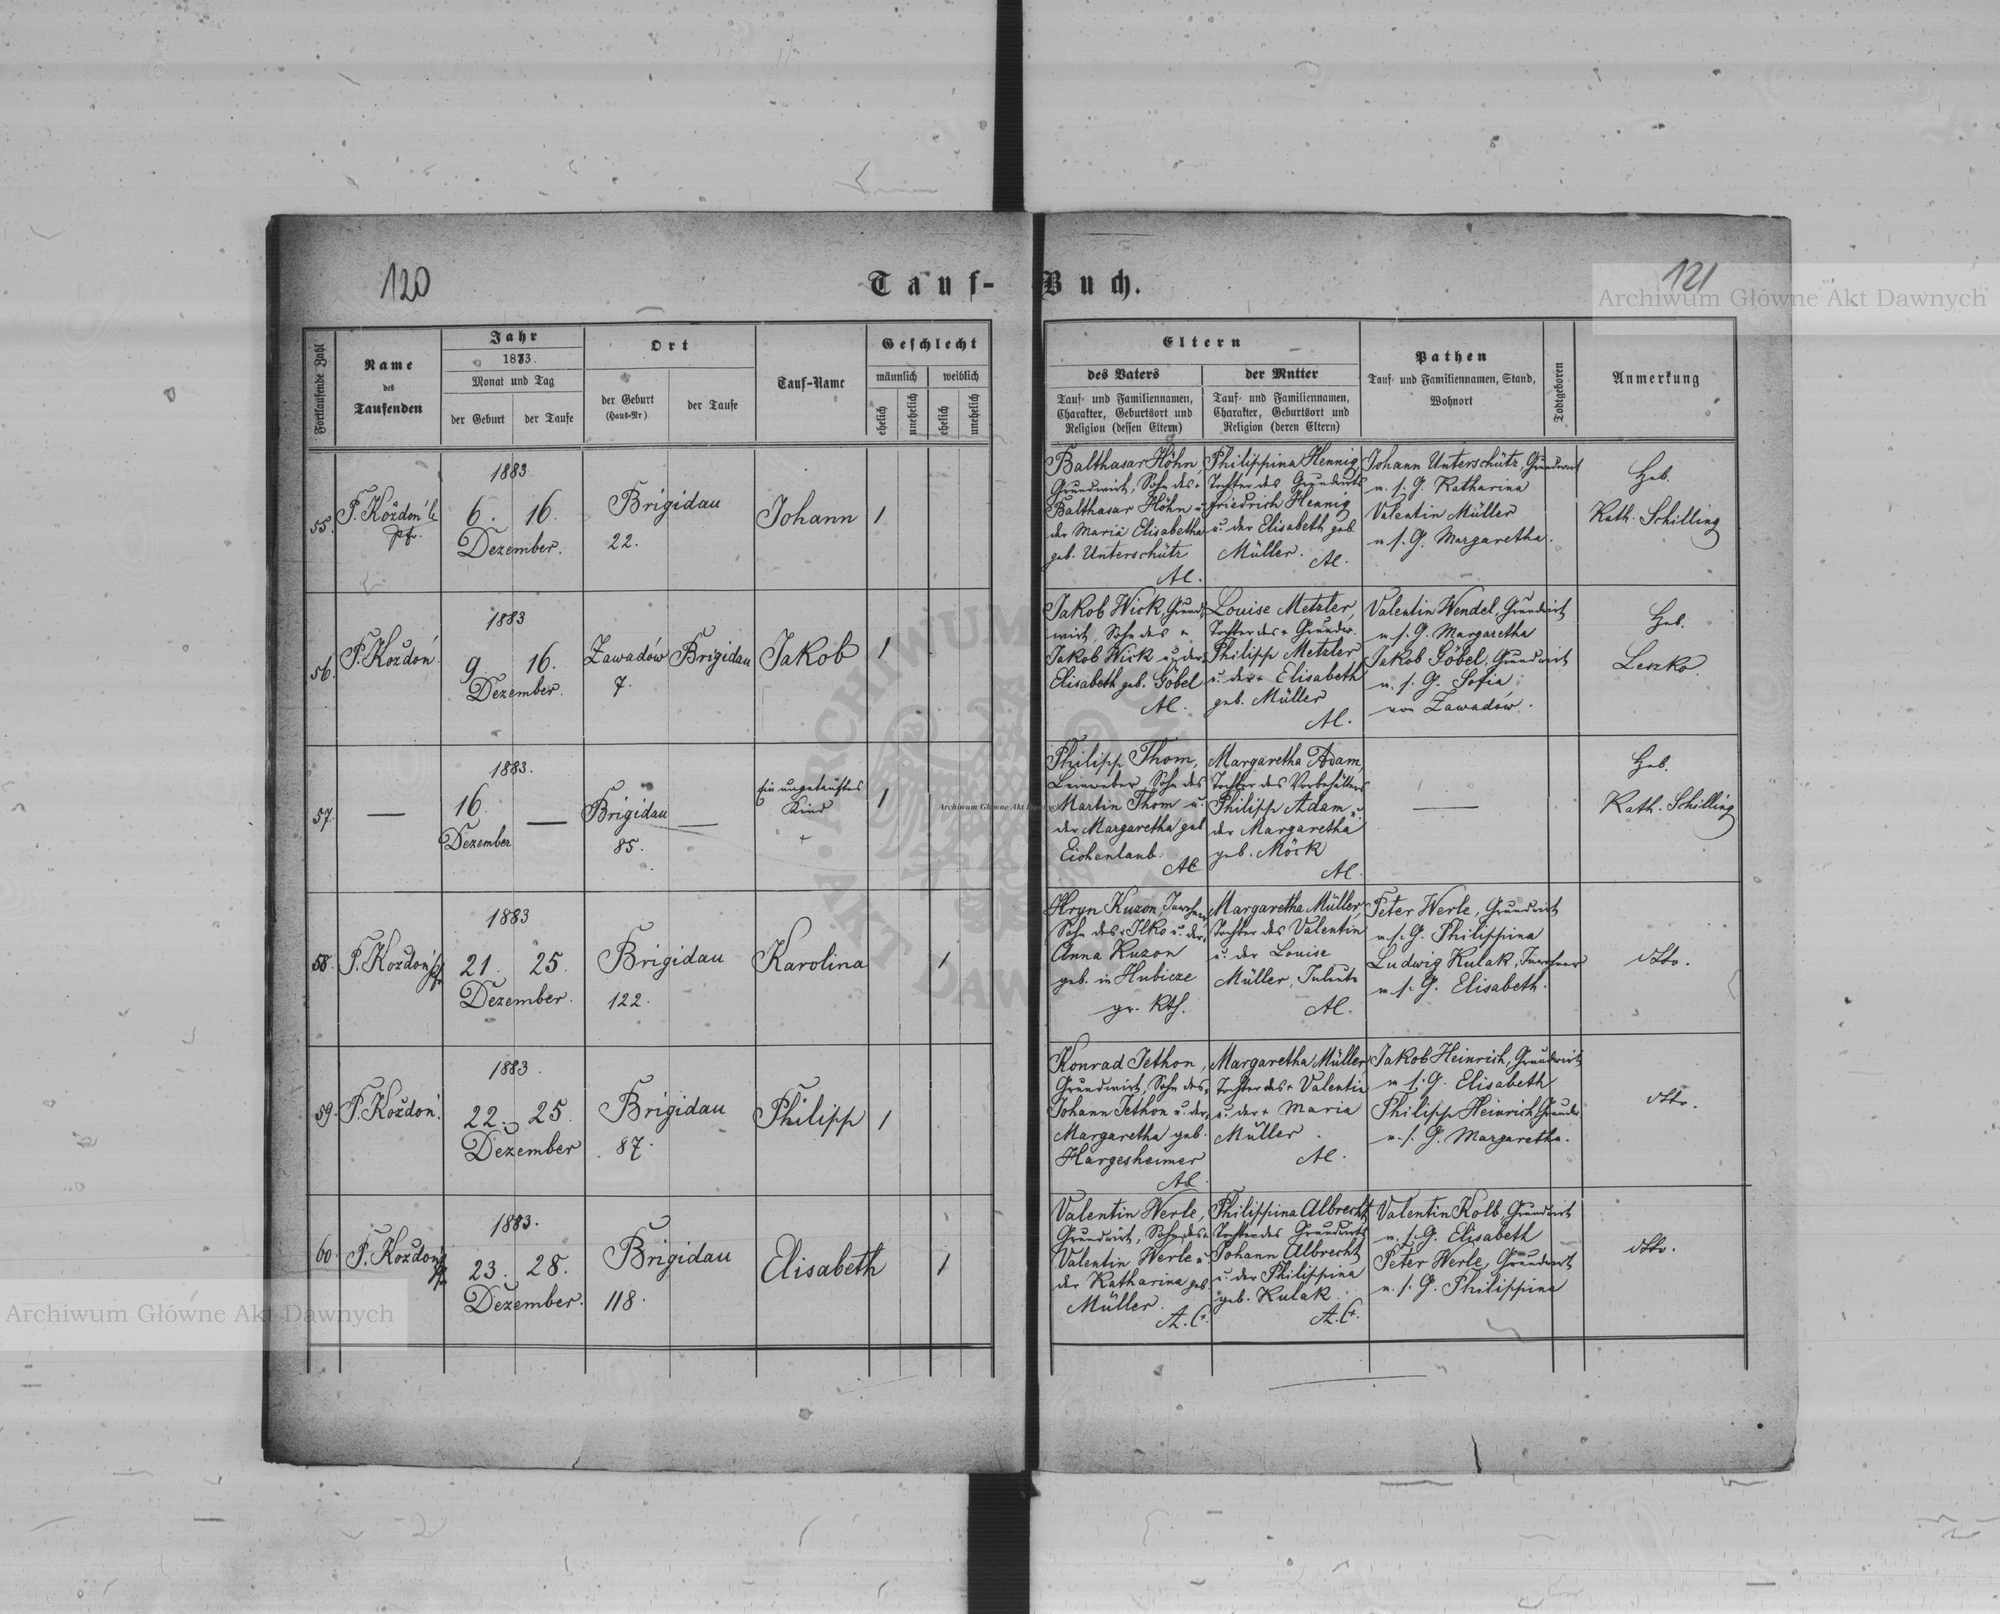 120
Tauf-
Buch.
121
Archiwum Główne Akt Dawnych
Fortlaufende Zahl
Name
des
Taufenden
Jahr
1883.
Monat und Tag
der Geburt
der Taufe
Ort
der Geburt
(Haus-Nr)
der Taufe
Tauf-Name
Geschlecht
männlich
weiblich
ehelich
unehelich
ehelich
unehelich
Eltern
des Vaters
Tauf- und Familiennamen,
Charakter, Geburtsort und
Religion (dessen Eltern)
der Mutter
Tauf- und Familiennamen,
Charakter, Geburtsort und
Religion (deren Eltern)
Pathen
Tauf- und Familiennamen, Stand,
Wohnort
Todtgeboren
Anmerkung
55.
Pfr.
1883
6. 16.
Dezember.
Brigidau
22.
Johann
1
Balthasar Höhn,
Grundwirt, Sohn des +
Balthasar Höhn u.
der Maria Elisabetha
geb. Unterschütz
AC.
Philippina Hennig,
Tochter des Grundwirts
Friedrich Hennig
u. der Elisabeth geb.
Müller.
AC.
Johann Unterschütz, Grundwirt
u. s. G. Katharina
Valentin Müller
u. s. G. Margaretha.
Heb.
Kath. Schilling
56.
P. Koždoń
1883
9. 16.
Dezember.
Zawadów
7.
Brigidau
Jakob
1
Jakob Wick, Grund-
wirt, Sohn des +
Jakob Wick u. der
Elisabeth geb. Göbel
AC.
Louise Metzler,
Tochter des + Grundw.
Philipp Metzler
u. der + Elisabeth
geb. Müller
AC.
Valentin Wendel, Grundwirt
u. s. G. Margaretha
Jakob Göbel, Grundwirt
u. s. G. Sofia
von Zawadów.
Heb.
Leszko.
57.
—
1883.
16. —
Dezember
Brigidau
85.
—
Ein ungetauftes
Kind
+
1
Philipp Thom,
Leinweber, Sohn des
Martin Thom u.
der Margaretha geb.
Eichenlaub.
AC
Margaretha Adam,
Tochter des Vorbesitzers
Philipp Adam u.
der Margaretha
geb. Möck
AC.
—
Heb.
Kath. Schilling
58.
P. Koždoń Pfr
1883
21. 25.
Dezember.
Brigidau
122.
Karolina
1
Hryn Kuzon,
Sohn des + Ilko u. der
Anna Kuzon
geb. in Hubicze
gr. Kth.
Margaretha Müller,
Tochter des Valentin
u. der Louise
Müller,
AC.
Peter Werle, Grundwirt
u. s. G. Philippina
Ludwig Kulak,
u. s. G. Elisabeth.
dtto.
59.
P. Koždoń.
1883.
22. 25.
Dezember
Brigidau
87.
Philipp
1
Konrad Jethon,
Grundwirt, Sohn des +
Johann Jethon u. der
Margaretha geb.
Hargesheimer
AC.
Margaretha Müller
Tochter des + Valentin
u. der + Maria
Müller.
AC.
Jakob Heinrich, Grundwirt
u. s. G. Elisabeth
Philipp Heinrich, Grundw
u. s. G. Margaretha.
dtto.
60.
P. Koždoń Pfr
1883.
23. 28.
Dezember.
Brigidau
118.
Elisabeth
1
Valentin Werle,
Grundwirt, Sohn des +
Valentin Werle u.
der Katharina geb.
Müller.
A.C.
Philippina Albrecht
Tochter des Grundwirts
Johann Albrecht
u. der Philippina
geb. Kulak.
A.C.
Valentin Kolb, Grundwirt
u. s. G. Elisabeth
Peter Werle, Grundwirt
u. s. G. Philippina
dtto.
Archiwum Główne Akt Dawnych